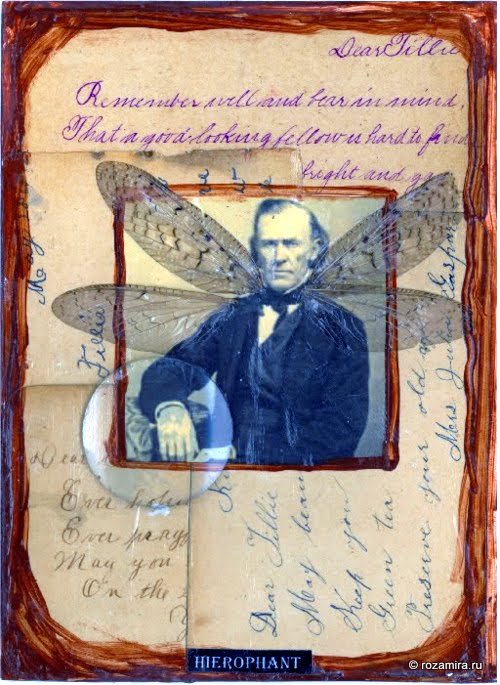 Dear Tillie
Remember well and bear in mind,
That a good looking fellow is hard to find
bright and ga
May
Tillie
Dear
Ever
Ever pray
May you
On the
Dear Tillie
May
Keep you
Green tea
Preserve your old a
Mrs
HIEROPHANT
© rozamira.ru